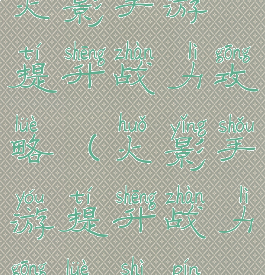 火 影 手 游
tí shēng zhàn lì gōng
提 升 战 力 攻
lüè huǒ yǐng shǒu
略 （ 火 影 手
yóu tí shēng zhàn lì
游 提 升 战 力
gōng lüè shì pín